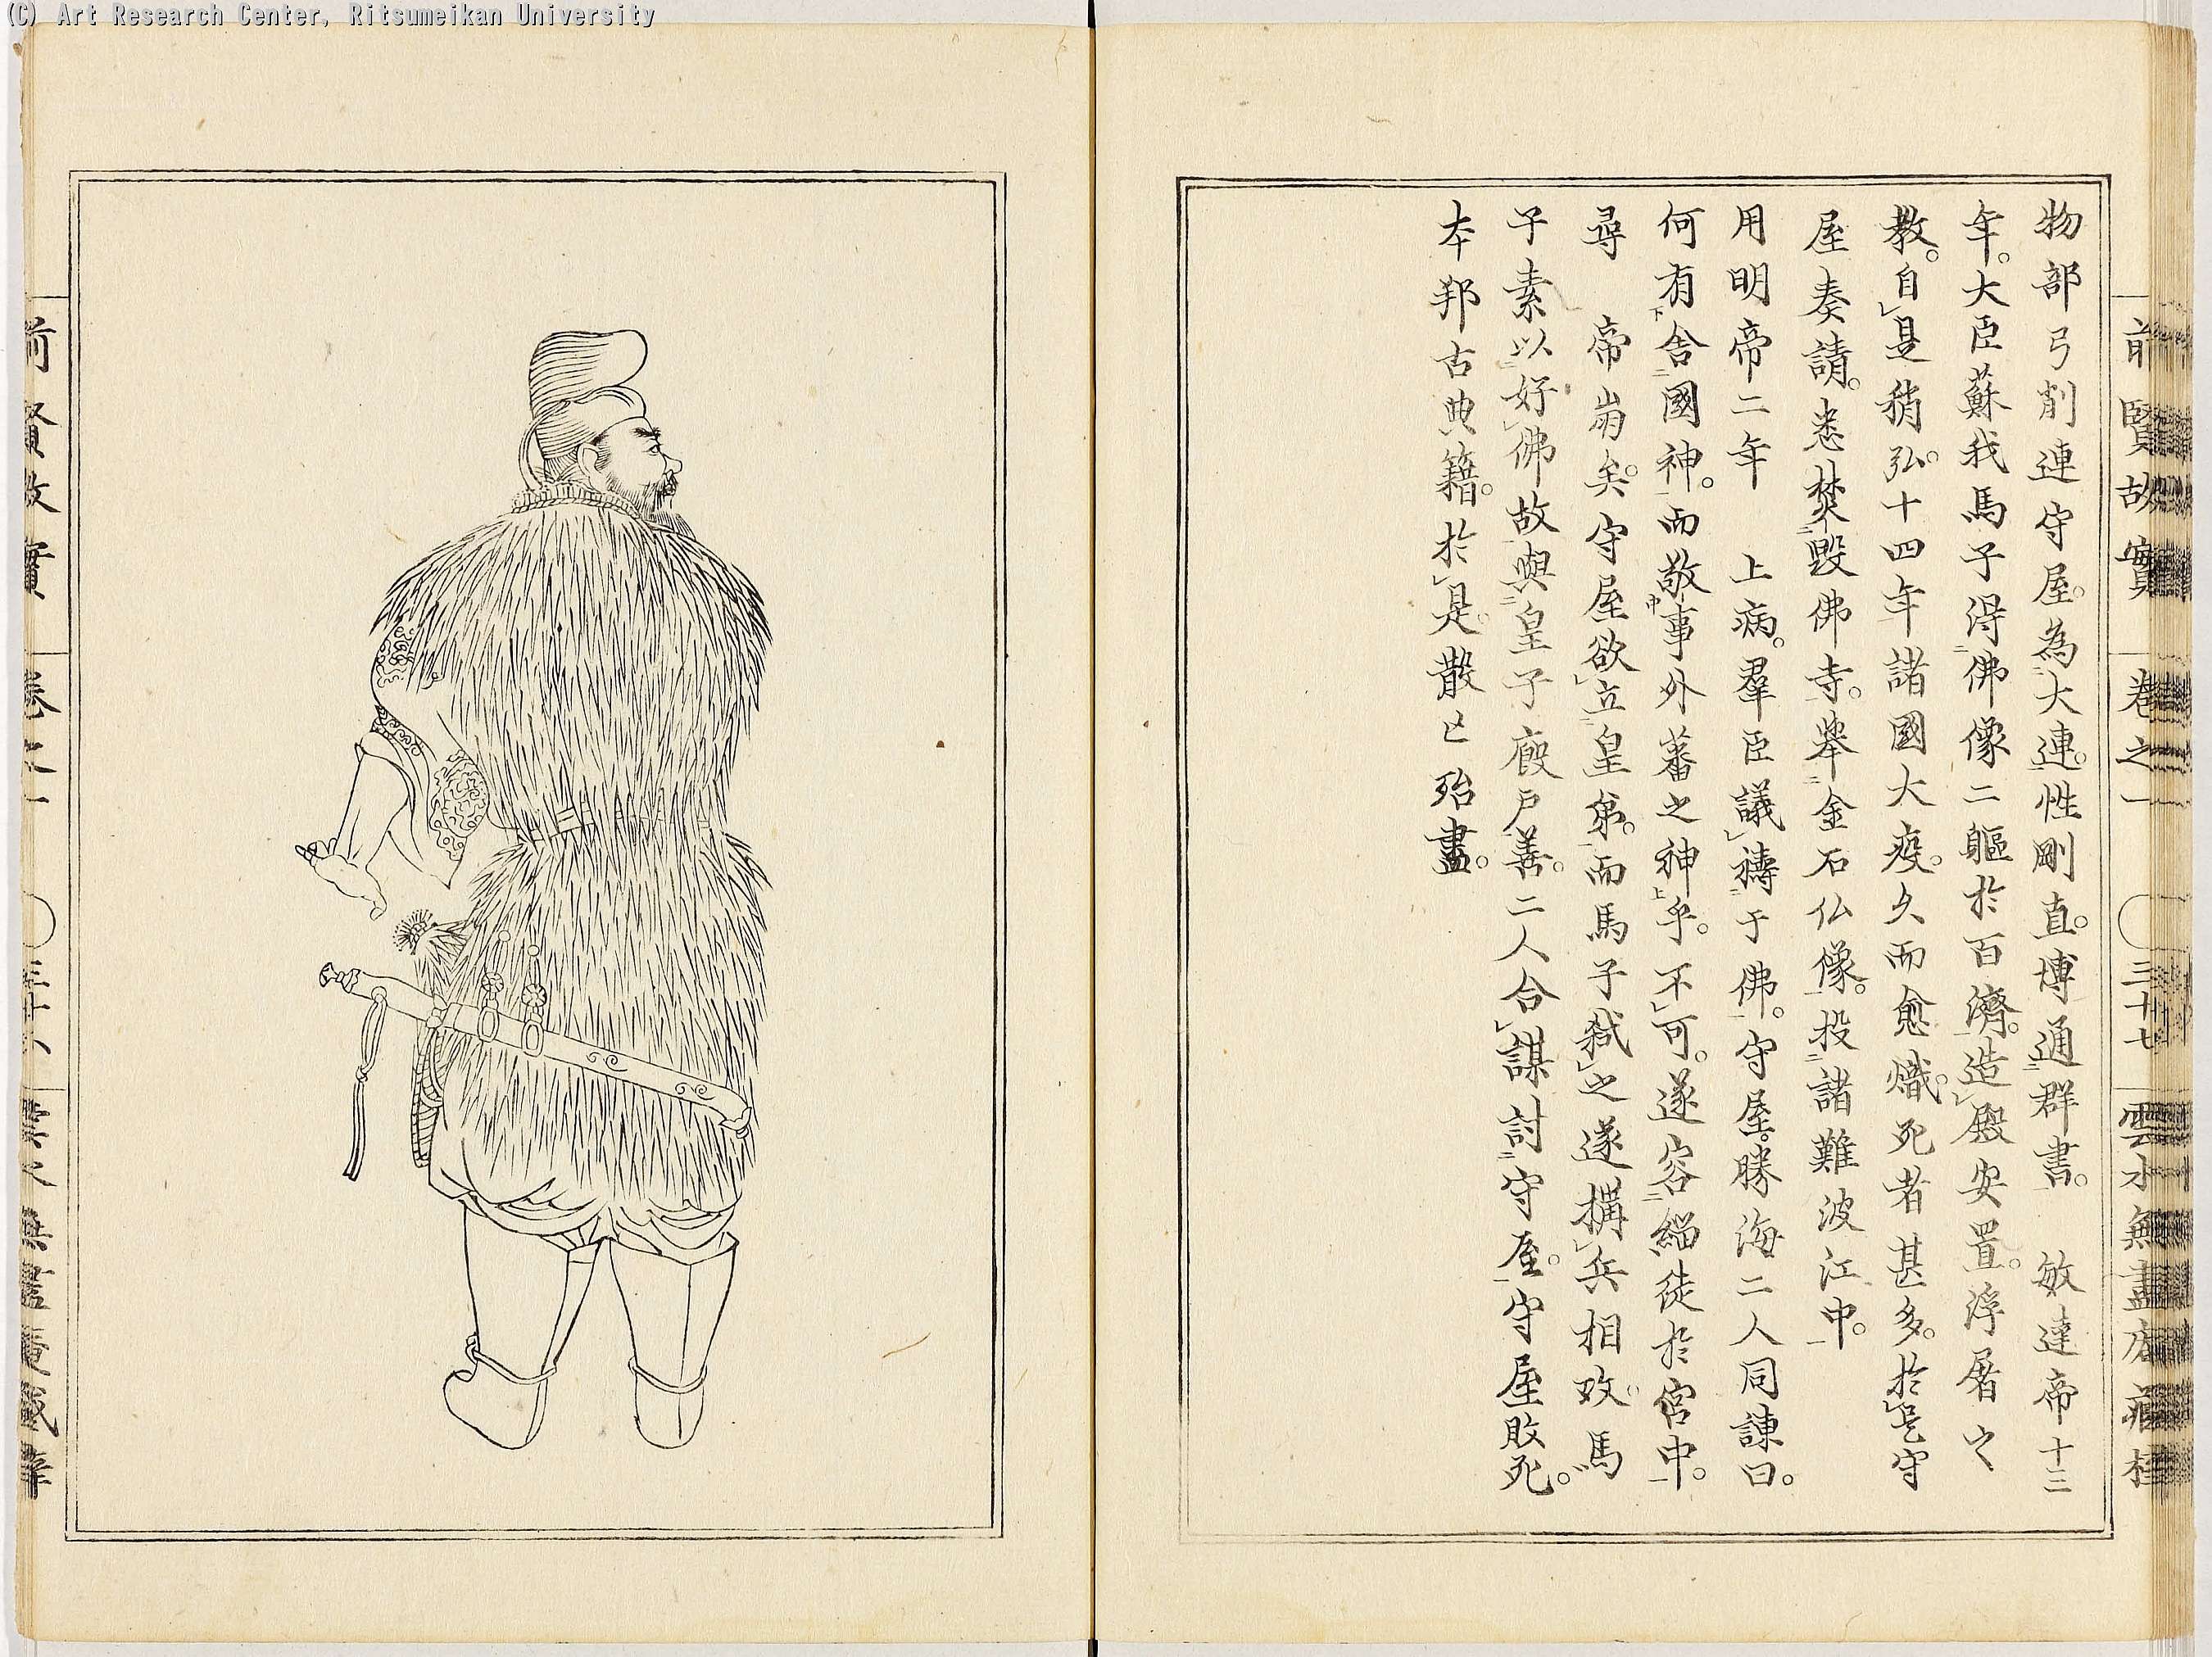 (C) Art Research Center, Ritsumeikan University
前賢故實 卷之一 ○ 三十七 雲水無盡庵藏
物部弓削連守屋。為大連。性剛直。博通群書。 敏達帝十三
年。大臣蘇我馬子得佛像二軀於百濟。造殿安置。浮屠之
教。自是稍弘。十四年諸國大疫。久而愈熾。死者甚多。於是守
屋奏請。悉焚毀佛寺。擧金石仏像。投諸難波江中。
用明帝二年 上病。羣臣議禱于佛。守屋。勝海二人同諌曰。
何有舎國神。而敬事外蕃之神乎。不可。遂容緇徒於宮中。
尋 帝崩矣。守屋欲立皇弟。而馬子弑之遂搆兵相攻。馬
子素以好佛故與皇子廐戸善。二人合謀討守屋。守屋敗死。
本邦古典籍。於是散亡殆盡。
前賢故實 卷之一